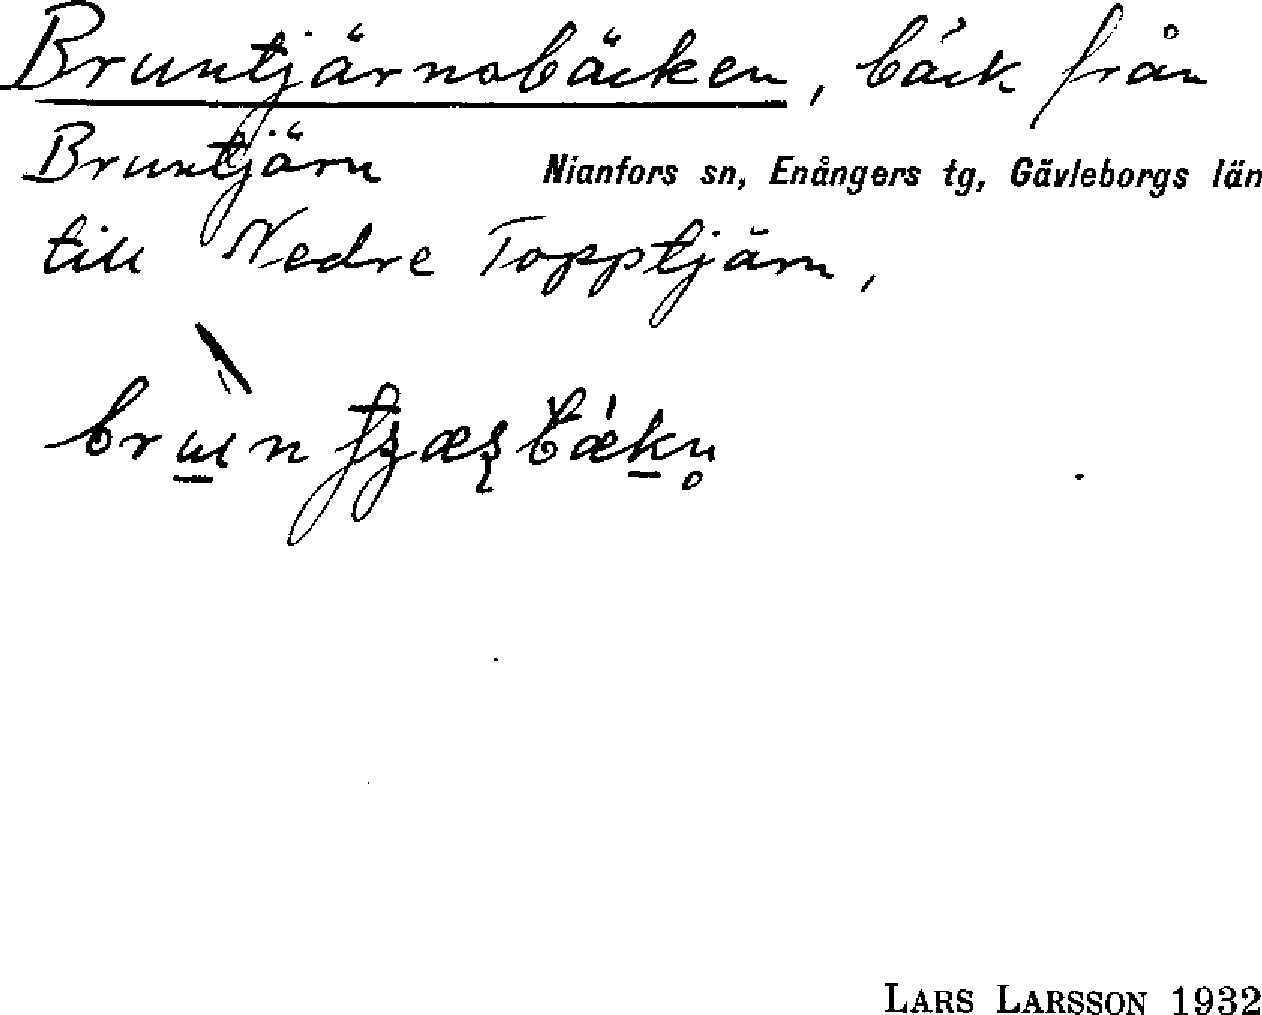 Bruntjärnsbäcken, bäck från
Bruntjärn
Nianfors sn, Enångers tg, Gävleborgs län
till Nedre Topptjärn,
LARS LARSSON 1932